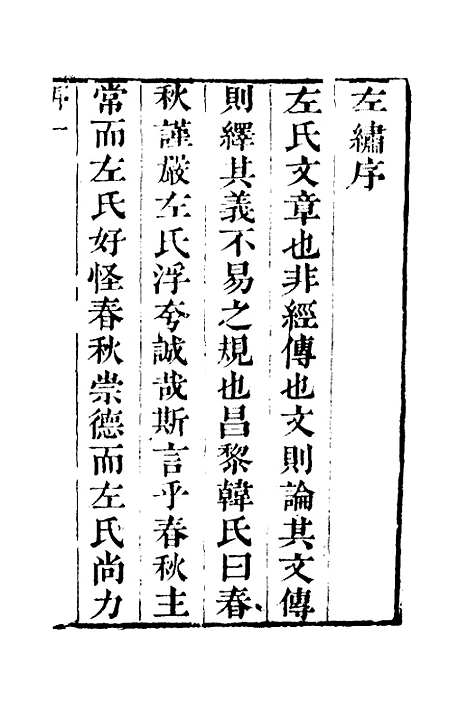 左繡序
左氏文章也非經傳也文則論其文傳
則繹其義不易之規也昌黎韓氏曰春
秋謹嚴左氏浮夸誠哉斯言乎春秋主
常而左氏好怪春秋崇德而左氏尚力
序一